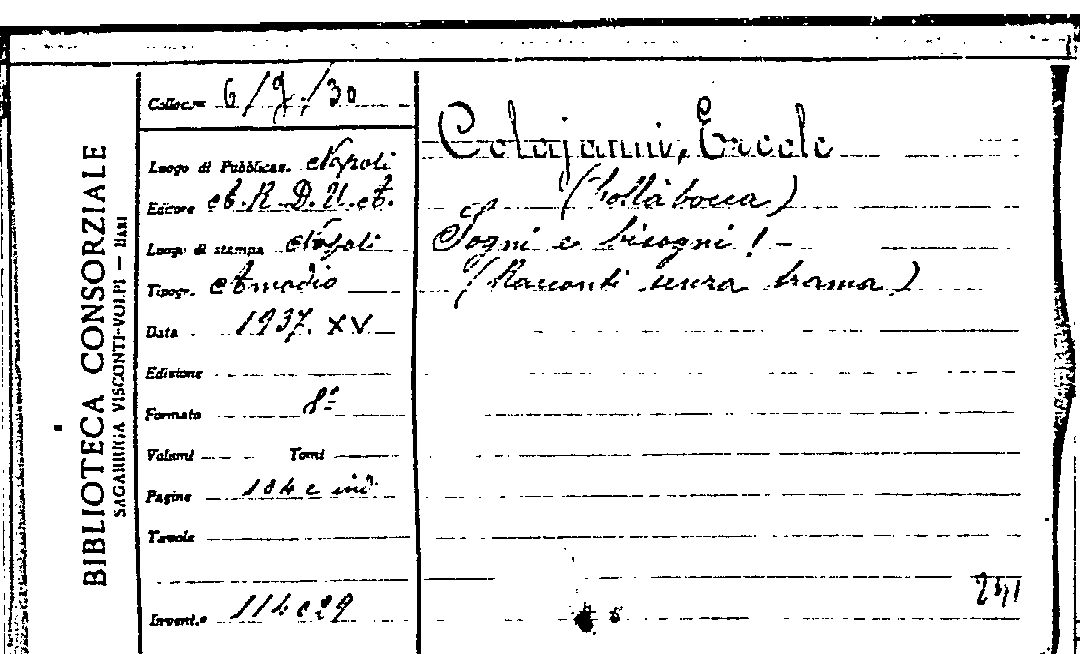 BIBLIOTECA CONSORZIALE
SAGARRIGA VISCONTI-VOLPI — BARI
Colloc.ne 6/J./30
Luogo di Pubblicaz. Napoli
Editore A.R.D.U.A.
Luogo di stampa Napoli
Tipogr. Amodio
Data 1937. XV
Edizione
Formato 8°
Volumi Tomi
Pagine 104 e ind
Tavole
Invent.o
Colajanni, Ercole
Sogni e bisogni! -
(Racconti senza trama)